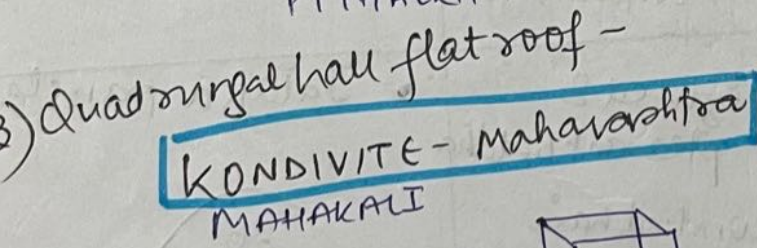 3) Quadrungal hall flat roof -
KONDIVITE - Maharashtra
MAHAKALI